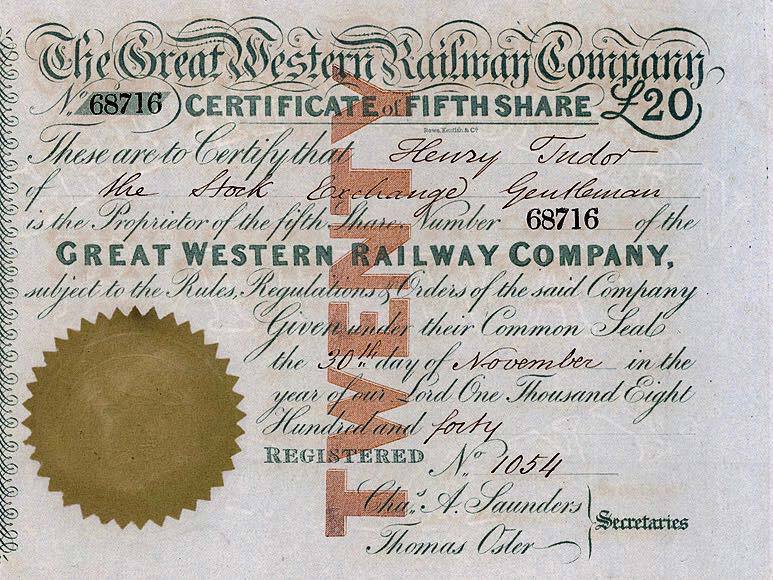 The Great Western Railway Company
No. 68716 CERTIFICATE of FIFTH SHARE £20
Rowe, Kentish & Co.
These are to Certify that Henry Tudor
of the Stock Exchange Gentleman
is the Proprietor of the fifth Share, Number 68716 of the
GREAT WESTERN RAILWAY COMPANY,
subject to the Rules, Regulations & Orders of the said Company
Given under their Common Seal
the 30th day of November in the
year of our Lord One Thousand Eight
Hundred and forty
REGISTERED No. 1054
Chas. A. Saunders
Thomas Osler
Secretaries
TWENTY